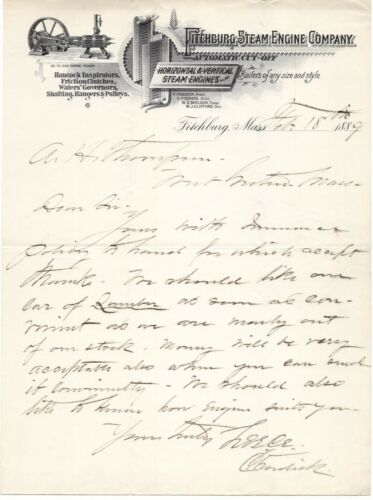 FITCHBURG STEAM ENGINE COMPANY,
AUTOMATIC CUT-OFF
HORIZONTAL & VERTICAL
STEAM ENGINES
Boilers of any size and style.
Hancock Inspirators,
Friction Clutches,
Waters' Governors,
Shafting, Hangers & Pulleys.
Fitchburg, Mass. Feb 18th 1889
A. H. Thompson
Mass
Dear Sir
Yours with Insurance
policy to hand for which accept
thanks. We should like one
car of Lumber as soon as con-
venient as we are nearly out
of our stock. Money will be very
acceptable also when you can send
it conveniently. We should also
like to know how Engine suits you.
Yours truly F.S.E.Co.
Fosdick